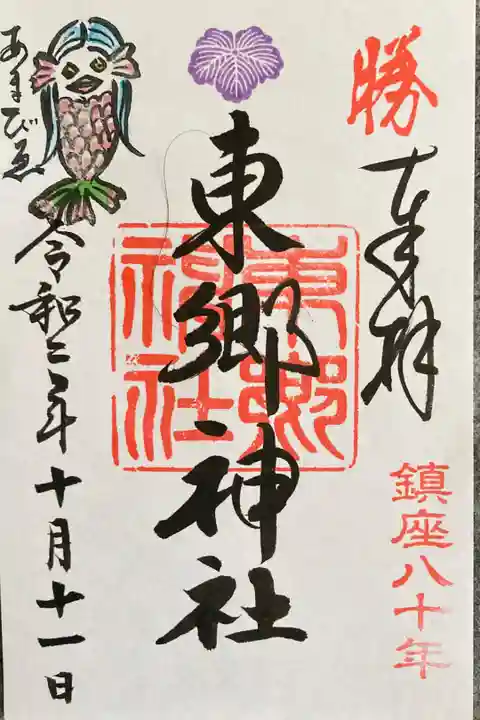 勝
奉拝
鎮座八十年
東郷神社
東郷神社
あまびゑ
令和二年十月十一日